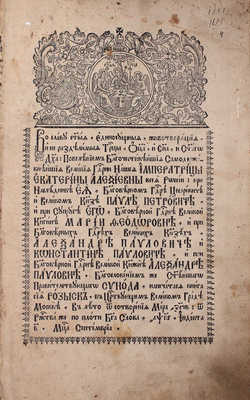 Во славу ст҃ыѧ, єдиносѹщныѧ, животворѧщїѧ
и нераздѣлимыѧ Трⷪ҇цы, Ѻ҃ца, и Сн҃а, и Ст҃агѡ
Дх҃а: Повелѣнїемъ Благочестивѣйшїѧ Самодер
жавнѣйшїѧ Великїѧ Гдⷭ҇рни Нашеѧ ИМПЕРАТРИЦЫ
ЕКАТЕРИНЫ АЛЕѮЕЕВНЫ всеѧ Рѡссїи: при
Наслѣдникѣ ЕѦ, Благовѣрномъ Гдⷭ҇рѣ Цесаревичѣ
и Великомъ Кнѧзѣ ПАУЛѢ ПЕТРОВИЧѢ, и
при Сѹпрѹгѣ ЕГѠ, Благовѣрной Гдⷭ҇рнѣ Великой
Кнѧгинѣ МАРІИ ѲЕОДОРОВНѢ, и при
Благовѣрныхъ Гдⷭ҇рехъ Великихъ Кнѧзехъ
АЛЕѮАНДРѢ ПАУЛОВИЧѢ и
КОНСТАНТІНѢ ПАУЛОВИЧѢ, и при
Благовѣрной Гдⷭ҇рнѣ Великой Кнѧжнѣ АЛЕѮАНДРѢ
ПАУЛОВНѢ, Благословенїемъ же Ст҃ѣйшагѡ
Правителствѹющагѡ СѴНОДА, напечатасѧ книга
сїѧ РОЗЫСКЪ, въ Царствѹющемъ Великомъ Градѣ
Москвѣ, Въ лѣто ѿ сотворенїѧ Мїра
Ржⷭ҇тва же по плоти Бг҃а Слова, Індїкта
Мцⷭ҇а Септемврїа